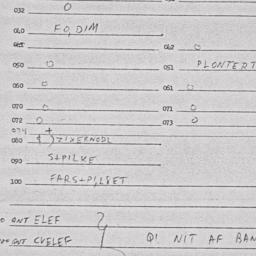 032 O
040 FO,DIM
042 O
050 O
051 PLONTERT
060 O
061 O
070 O
071 O
072 O
073 O
074 +
080
090 S+PILKE
100 FARS+PILSET
ONT ELEF
ONT CVELEF
QI NIT AF BAN